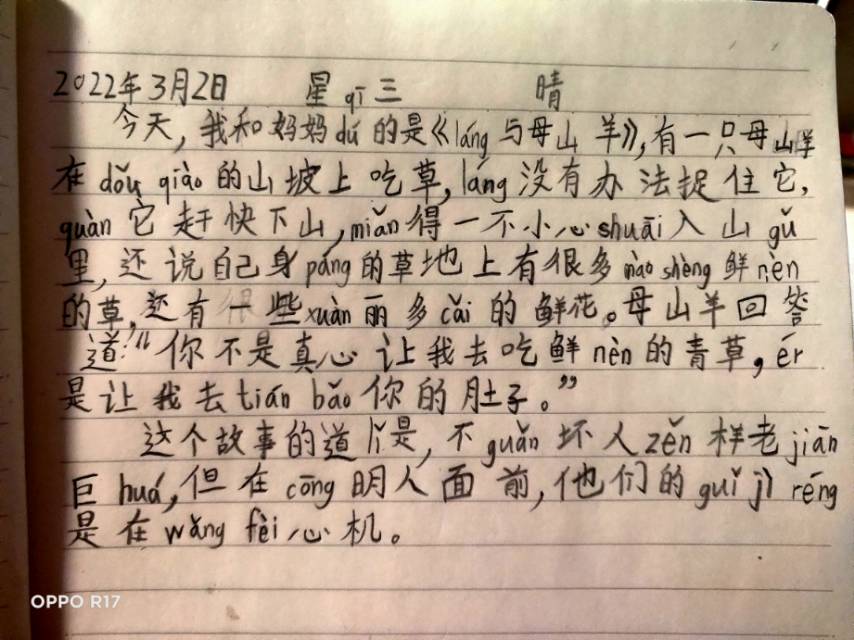 2022年3月2日 星qī三 晴
今天,我和妈妈dú的是《láng与母山羊》,有一只母山羊
在dǒu qiào的山坡上吃草,láng没有办法捉住它,
quàn它赶快下山,miǎn得一不小心shuāi入山gǔ
里,还说自己身páng的草地上有很多mào shèng鲜nèn
的草,还有很一些xuàn丽多cǎi的鲜花。母山羊回答
道:“你不是真心让我去吃鲜nèn的青草,ér
是让我去tián bǎo你的肚子。”
这个故事的道lǐ是,不guǎn坏人zěn样老jiān
巨huá,但在cōng明人面前,他们的guǐ jì réng
是在wǎng fèi心机。
OPPO R17